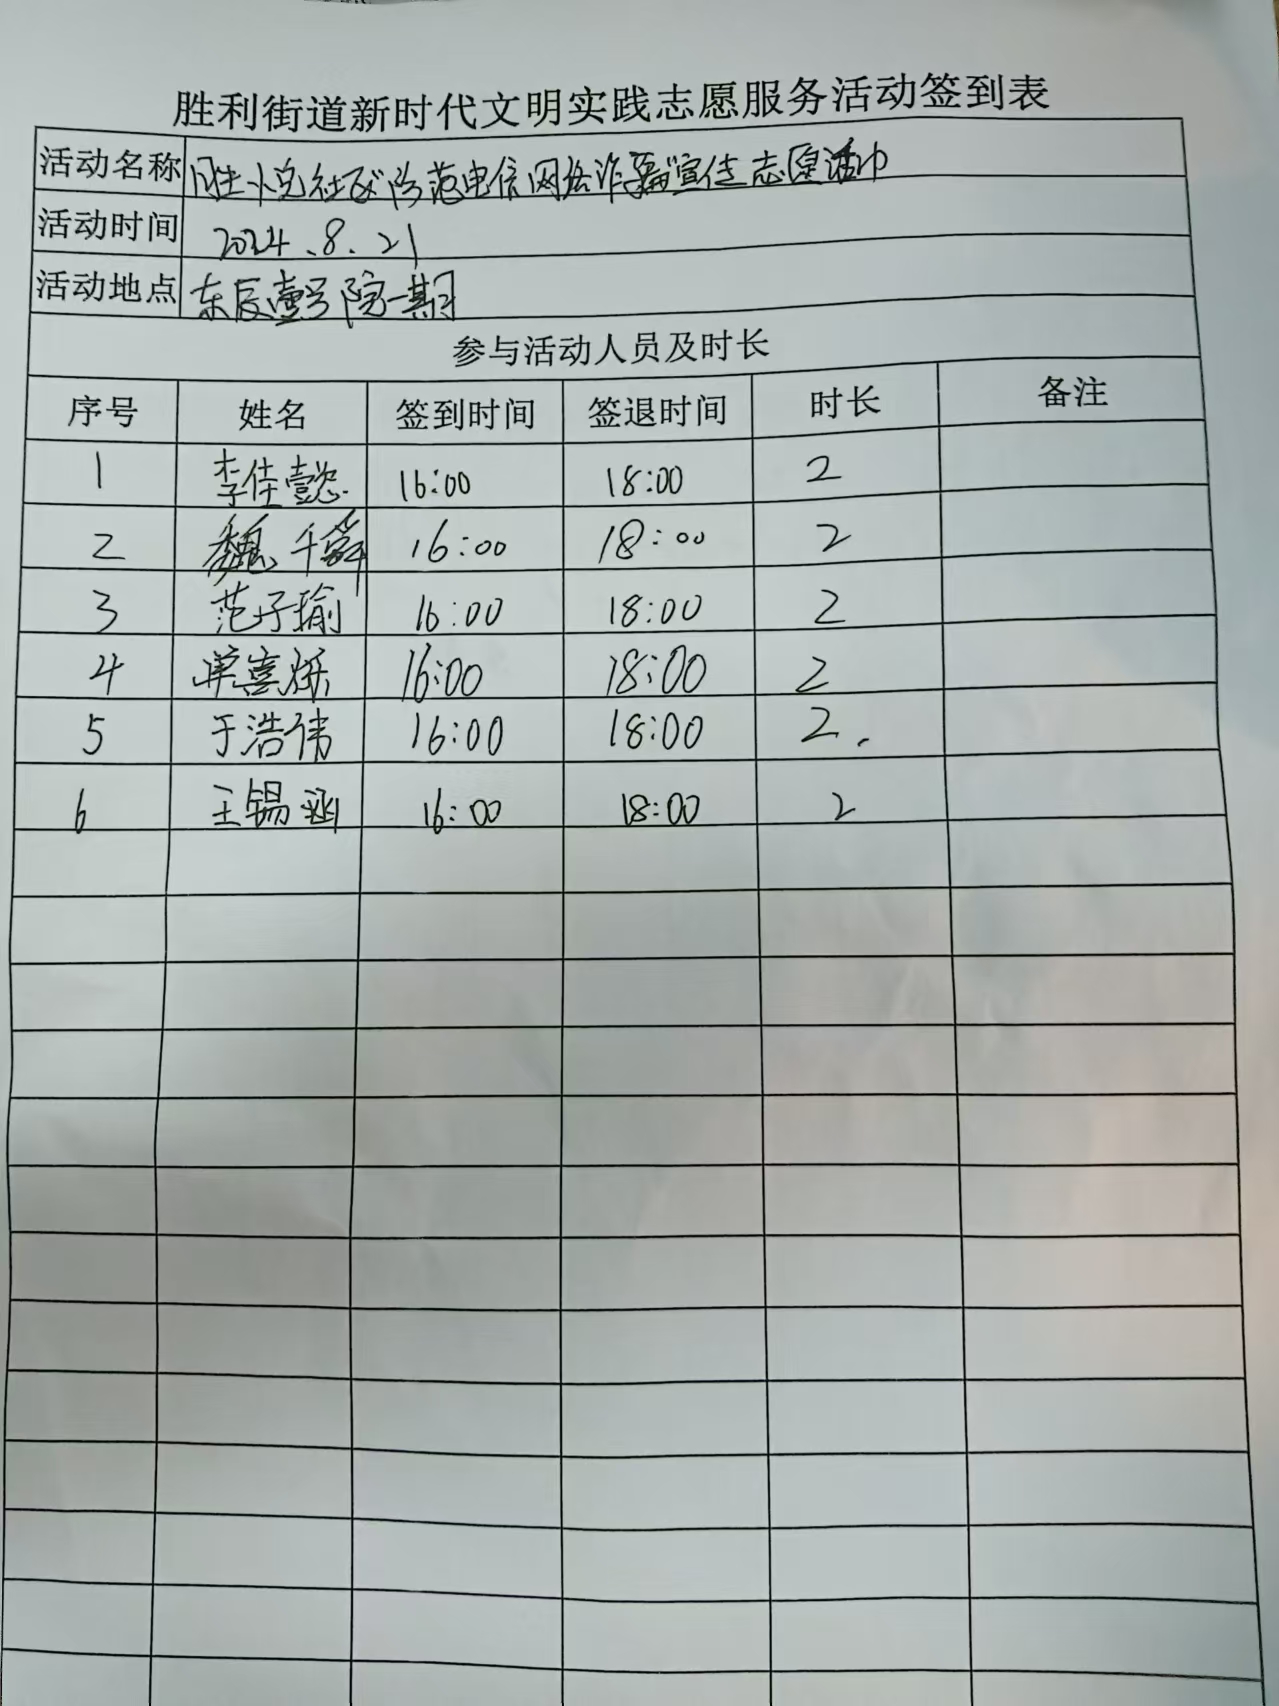 胜利街道新时代文明实践志愿服务活动签到表
活动名称 社区防范电信网络诈骗宣传志愿活动
活动时间 2024.8.21
活动地点 东辰壹号院一期
参与活动人员及时长
序号 姓名 签到时间 签退时间 时长 备注
1 李佳懿 16:00 18:00 2
2 魏千舜 16:00 18:00 2
3 范子瑜 16:00 18:00 2
4 单熹烁 16:00 18:00 2
5 于浩伟 16:00 18:00 2.
6 王锡涵 16:00 18:00 2